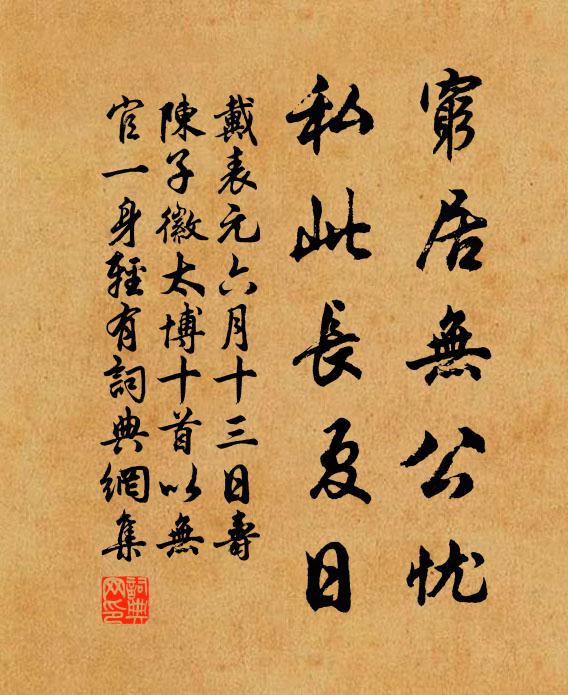 窮居無公忧
私此長夏日
戴表元六月十三日壽
陳子徽太博十首以無
官一身輕有詞典網集
詞典網印